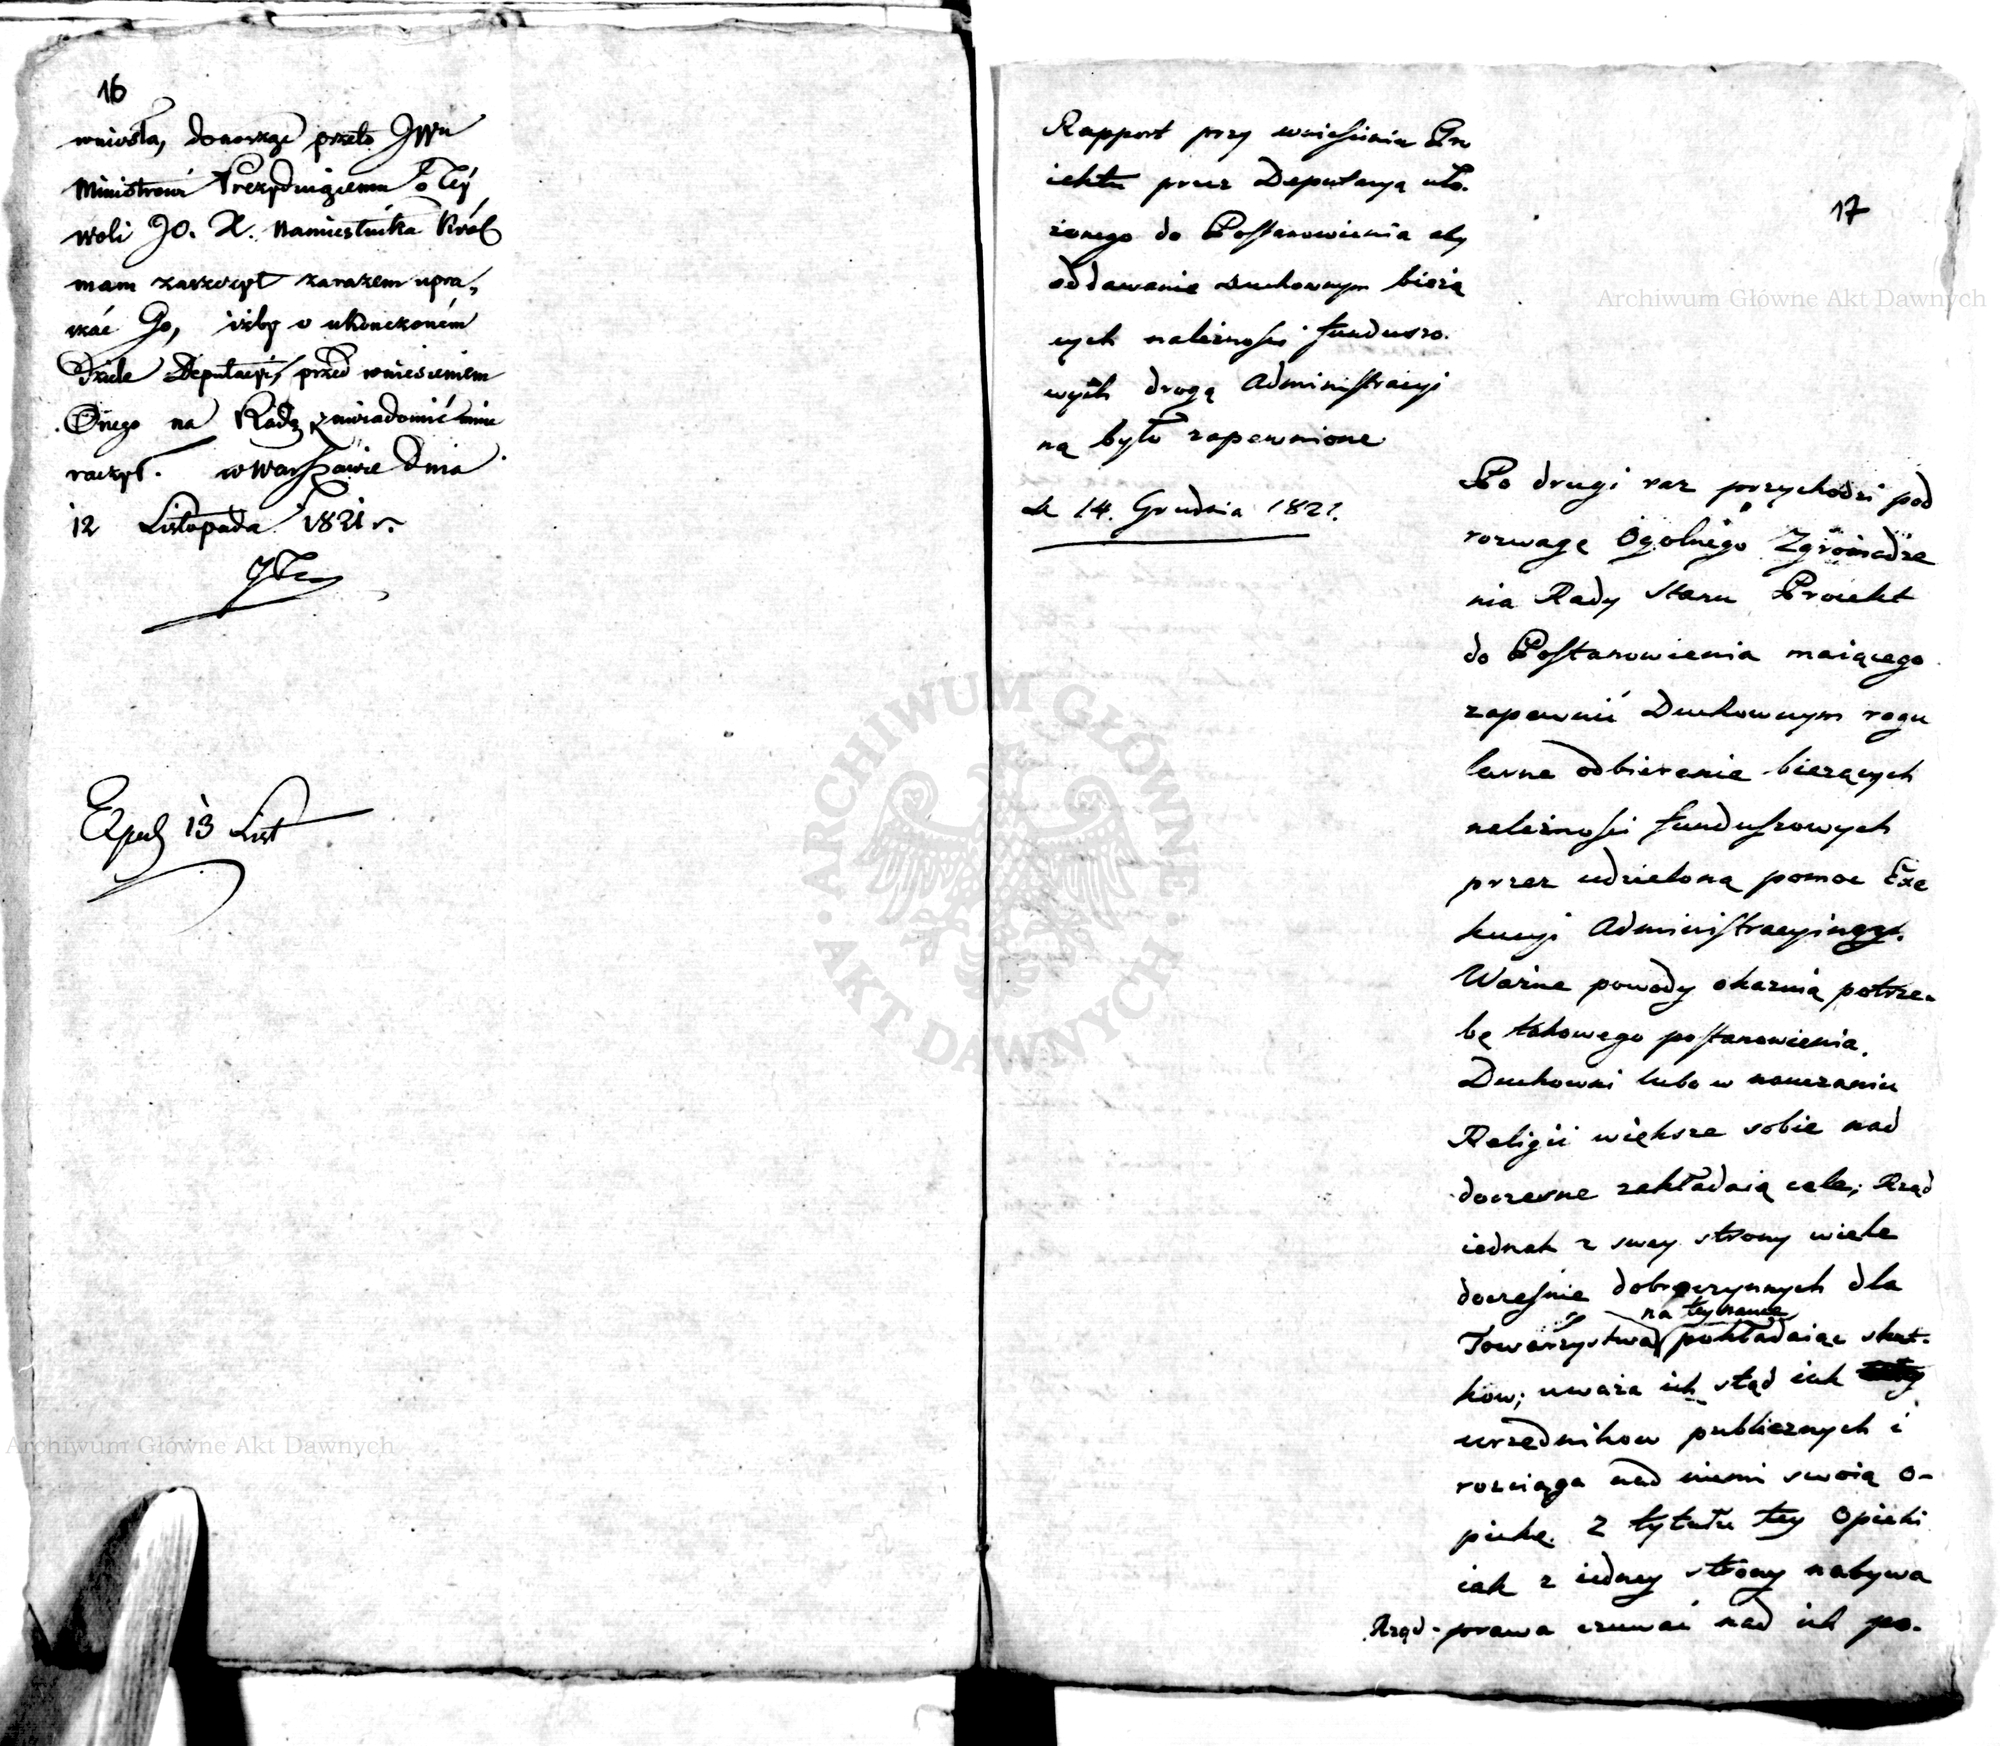 16
wniosła, donosząc przeto JWu
Ministrowi Prezyduiącemu o tey
woli JO. X. Namiestnika Król
mam zaszczyt zarazem upra„
szać Go, iżby o ukończoném
Dziele Deputacyi, przed wniesieniem
Onego na Radę zawiadomić mnie
raczył. w Warszawie dnia
12 Listopada 1821 r.
Exped 13 List
17
Rapport przy wniesieniu Pro
iektu przez Deputacyą uło-
żonego do Postanowienia aby
oddawanie Duchownym bieżą
cych należności funduszo-
wych drogą Administracyi
ną było zapewnione
d. 14. Grudnia 1821.
Po drugi raz przychodzi pod
rozwagę Ogolnego Zgromadze
nia Rady Stanu Proiekt
do Postanowienia maiącego
zapewnić Duchownym regu
larne odbieranie bieżących
należności funduszowych
przez udzieloną pomoc Exe
kucyi Administracyiney.
Ważne powody okazuią potrze-
bę takowego postanowienia.
Duchowni lubo w nauczaniu
Religii większe sobie nad
doczesne zakładaią cele; Rząd
iednak z swey strony wiele
docześnie dobroczynnych dla
na tey nauce
Towarzystwa pokładaiąc skut-
kow; uważa ich stąd iak
urzędnikow publicznych i
rozciąga nad niemi swoią o-
piekę. Z tytułu tey Opieki
iak z iedney strony nabywa
Rząd - prawa czuwać nad ich po-
Archiwum Główne Akt Dawnych
Archiwum Główne Akt Dawnych
ARCHIWUM GŁÓWNE
AKT DAWNYCH